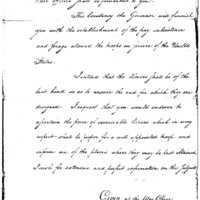 their officers shall be furnished to you.
His Excellency the Governor will furnish
you with the establishment of the pay subsistence
and forage allowed the troops on service of the United
States.
I intend that the Horses shall be of the
best kind so as to answer the end for which they are
designed. I request that you would endeavor to
ascertain the price of serviceable horses which in every
respect shall be proper for a well appointed troop, and
inform me of the places where they may be best obtained.
I wish for extensive and perfect information on the subject
Given at the War Office